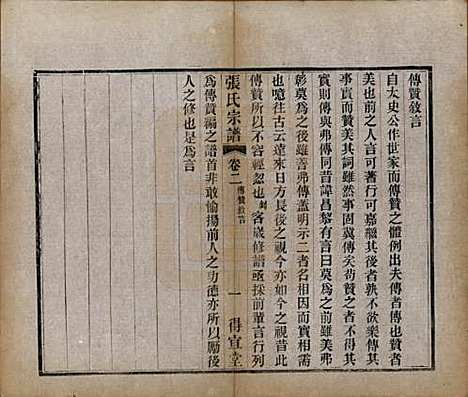 傳贊敘言
自太史公作世家而傳贊之體例出夫傳者傳也贊
美也前之人言可著行可嘉繼其後者孰不欲樂傳其
事實而贊美其詞雖然事固冀傳矣苟贊之而失其
實則傳與弗傳同昔諱昌黎有言曰莫為之前雖美弗
彰莫為之後雖善弗傳蓋明示二者名相因而實相需
也噫往古云遠來日方長後之視今亦如今之視昔此
傳贊所以不容輕忽也刻客歲修譜亟採前輩言行列
張氏宗譜
卷二
傳贊敘言
一
得宜堂
為傳贊編之譜首非敢愉揚前人之功德亦所以勵後
人之修也是為言